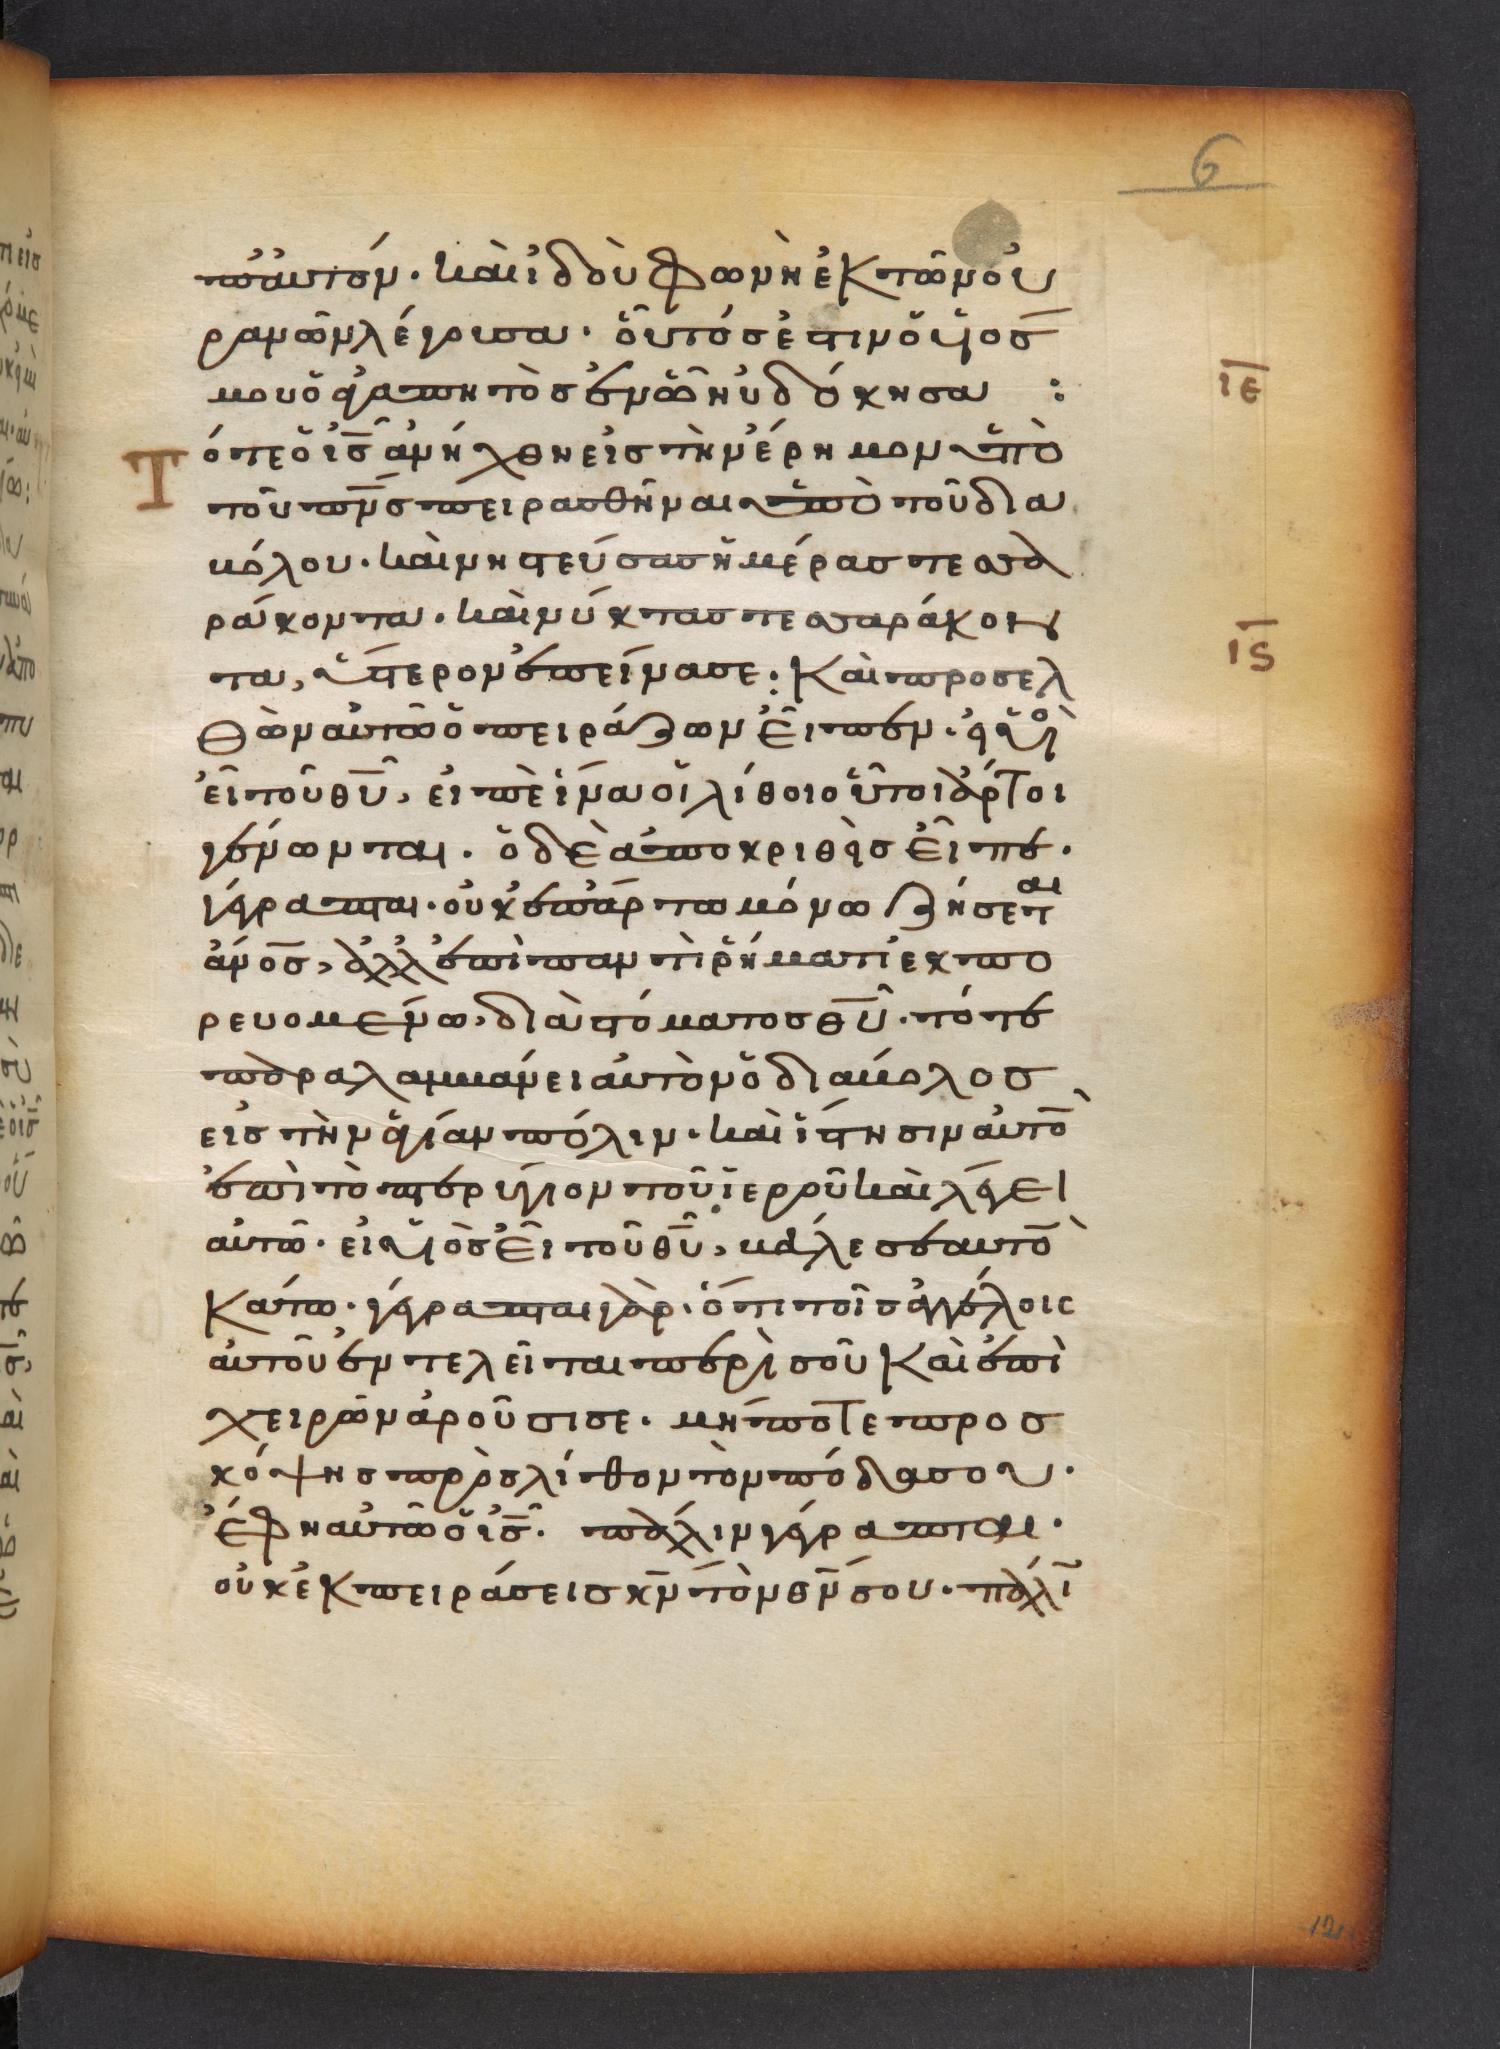 6
π' αὐτόν. καὶ ἰδοὺ φωνὴ ἐκ τῶν οὐ
ρανῶν λέγουσα. οὗτός ἐστιν ὁ υἱός
μου ὁ ἀγαπητὸς ἐν ᾧ ηὐδόκησα :
ιε
Τότε ὁ ις ἀνήχθη εἰς τὴν ἔρημον ὑπὸ
τοῦ πνς πειρασθῆναι ὑπὸ τοῦ δια
βόλου. καὶ νηστεύσας ἡμέρας τεσσα
ράκοντα. καὶ νύκτας τεσσαράκον
τα, ὕστερον ἐπείνασε: Καὶ προσελ
ις
θὼν αὐτῶ ὁ πειράζων εἶπεν. εἰ υἱὸ
εἶ τοῦ θυ, εἰπὲ ἵνα οἱ λίθοι οὗτοι ἄρτοι
γένωνται. ὁ δὲ ἀποκριθεὶς εἶπε.
γέγραπται. οὐκ ἐπ' ἄρτω μόνω ζήσεται
ἀνος, ἀλλ' ἐπὶ παντὶ ῥήματι ἐκπο
ρευομένω, διὰ στόματος θυ. τότε
παραλαμβάνει αὐτὸν ὁ διάβολος
εἰς τὴν ἁγίαν πόλιν. καὶ ἵστησιν αὐτὸ
ἐπὶ τὸ πτερύγιον τοῦ ἱεροῦ καὶ λέγει
αὐτῶ. εἰ υἱὸς εἶ τοῦ θυ, βάλε σεαυτὸ
Κάτω. γέγραπται γὰρ. ὅτι τοῖς ἀγγέλοις
αὐτοῦ ἐντελεῖται περὶ σοῦ Καὶ ἐπὶ
χειρῶν ἀροῦσι σε. μήποτε προσ
κόψης πρὸς λίθον τὸν πόδα σου.
ἔφη αὐτῶ ὁ ις. πάλιν γέγραπται.
οὐκ ἐκπειράσεις κν τὸν θν σου. πάλι
121